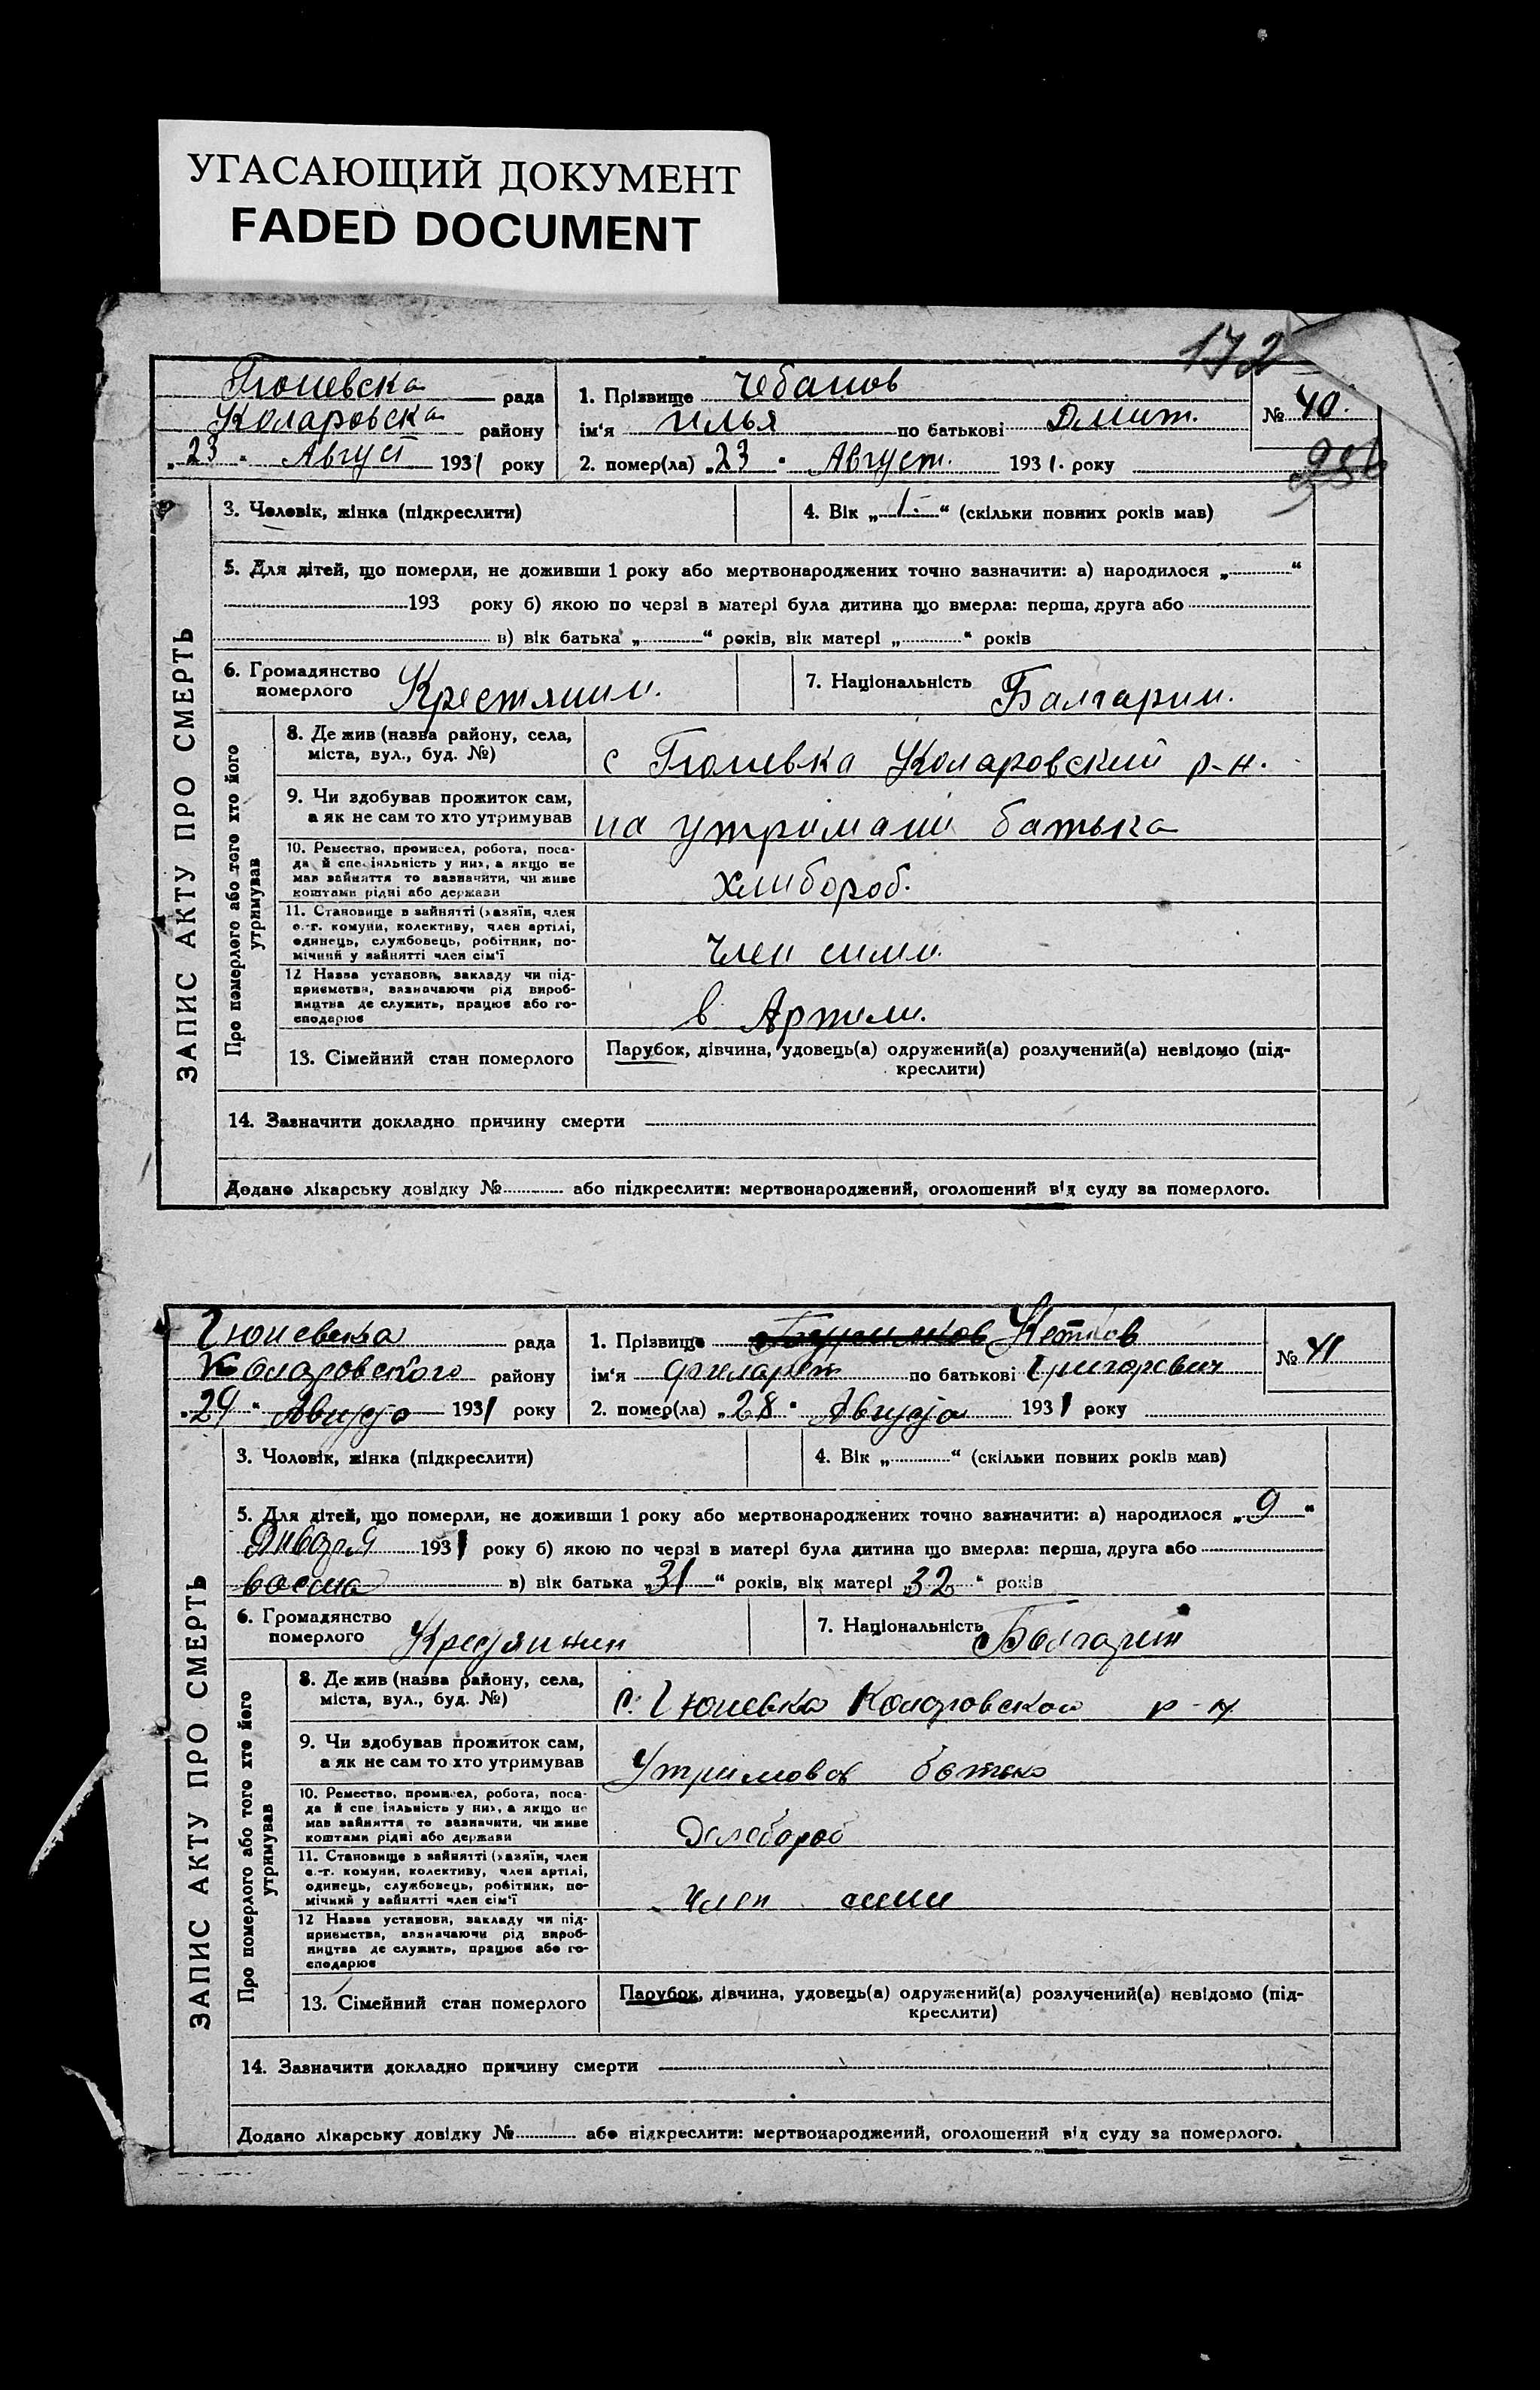 УГАСАЮЩИЙ ДОКУМЕНТ
FADED DOCUMENT
172
Гюневска рада
Коларовска району
„23“ Август 1931 року
1. Прізвище Чебанов
ім'я Илья по батькові Дмит.
2. помер(ла) „23“ Август. 1931. року
№ 40.
ЗАПИС АКТУ ПРО СМЕРТЬ
3. Чоловік, жінка (підкреслити)
4. Вік „1“ (скільки повних років мав)
5. Для дітей, що померли, не доживши 1 року або мертвонароджених точно зазначити: а) народилося „ “
193 року б) якою по черзі в матері була дитина що вмерла: перша, друга або
в) вік батька „ “ років, вік матері „ “ років
6. Громадянство померлого Крестянин.
7. Національність Балгарин.
Про померлого або того хто його утримував
8. Де жив (назва району, села,
міста, вул., буд. №)
с Гюневка Коларовский р-н.
9. Чи здобував прожиток сам,
а як не сам то хто утримував
на утримани батька
10. Ремество, промисел, робота, поса-
да й спеціяльність у них, а якщо не
мав зайняття то зазначити, чи живе
коштами рідні або держави
хлибороб.
11. Становище в зайнятті (хазяїн, член
с.-г. комуни, колективу, член артілі,
одинець, службовець, робітник, по-
мічний у зайнятті член сім'ї
член сими.
12 Назва установи, закладу чи під-
приємства, зазначаючи рід вироб-
ництва де служить, працює або го-
сподарює
в Артели.
13. Сімейний стан померлого
Парубок, дівчина, удовець(а) одружений(а) розлучений(а) невідомо (під-
креслити)
14. Зазначити докладно причину смерти
Додано лікарську довідку № або підкреслити: мертвонароджений, оголошений від суду за померлого.
Гюневска рада
Коларовского району
„29“ Августа 1931 року
1. Прізвище
ім'я Филарет по батькові Григоревич
2. помер(ла) „28“ Августа 1931 року
№ 41
ЗАПИС АКТУ ПРО СМЕРТЬ
3. Чоловік, жінка (підкреслити)
4. Вік „ “ (скільки повних років мав)
5. Для дітей, що померли, не доживши 1 року або мертвонароджених точно зазначити: а) народилося „9“
Января 1931 року б) якою по черзі в матері була дитина що вмерла: перша, друга або
в) вік батька „31“ років, вік матері „32“ років
6. Громадянство померлого Крестянин
7. Національність Болгарин
Про померлого або того хто його утримував
8. Де жив (назва району, села,
міста, вул., буд. №)
с. Гюневка Коларовской р-н
9. Чи здобував прожиток сам,
а як не сам то хто утримував
Утримовав батько
10. Ремество, промисел, робота, поса-
да й спеціяльність у них, а якщо не
мав зайняття то зазначити, чи живе
коштами рідні або держави
11. Становище в зайнятті (хазяїн, член
с.-г. комуни, колективу, член артілі,
одинець, службовець, робітник, по-
мічний у зайнятті член сім'ї
член сими
12 Назва установи, закладу чи під-
приємства, зазначаючи рід вироб-
ництва де служить, працює або го-
сподарює
13. Сімейний стан померлого
Парубок, дівчина, удовець(а) одружений(а) розлучений(а) невідомо (під-
креслити)
14. Зазначити докладно причину смерти
Додано лікарську довідку № або підкреслити: мертвонароджений, оголошений від суду за померлого.